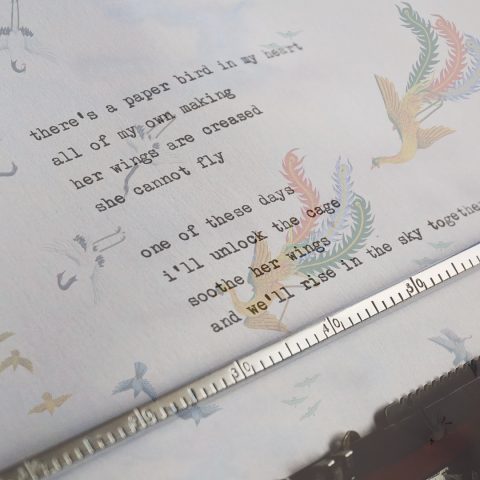 there's a paper bird in my heart
all of my own making
her wings are creased
she cannot fly
one of these days
i'll unlock the cage
soothe her wings
and we'll rise in the sky together
30
40
50